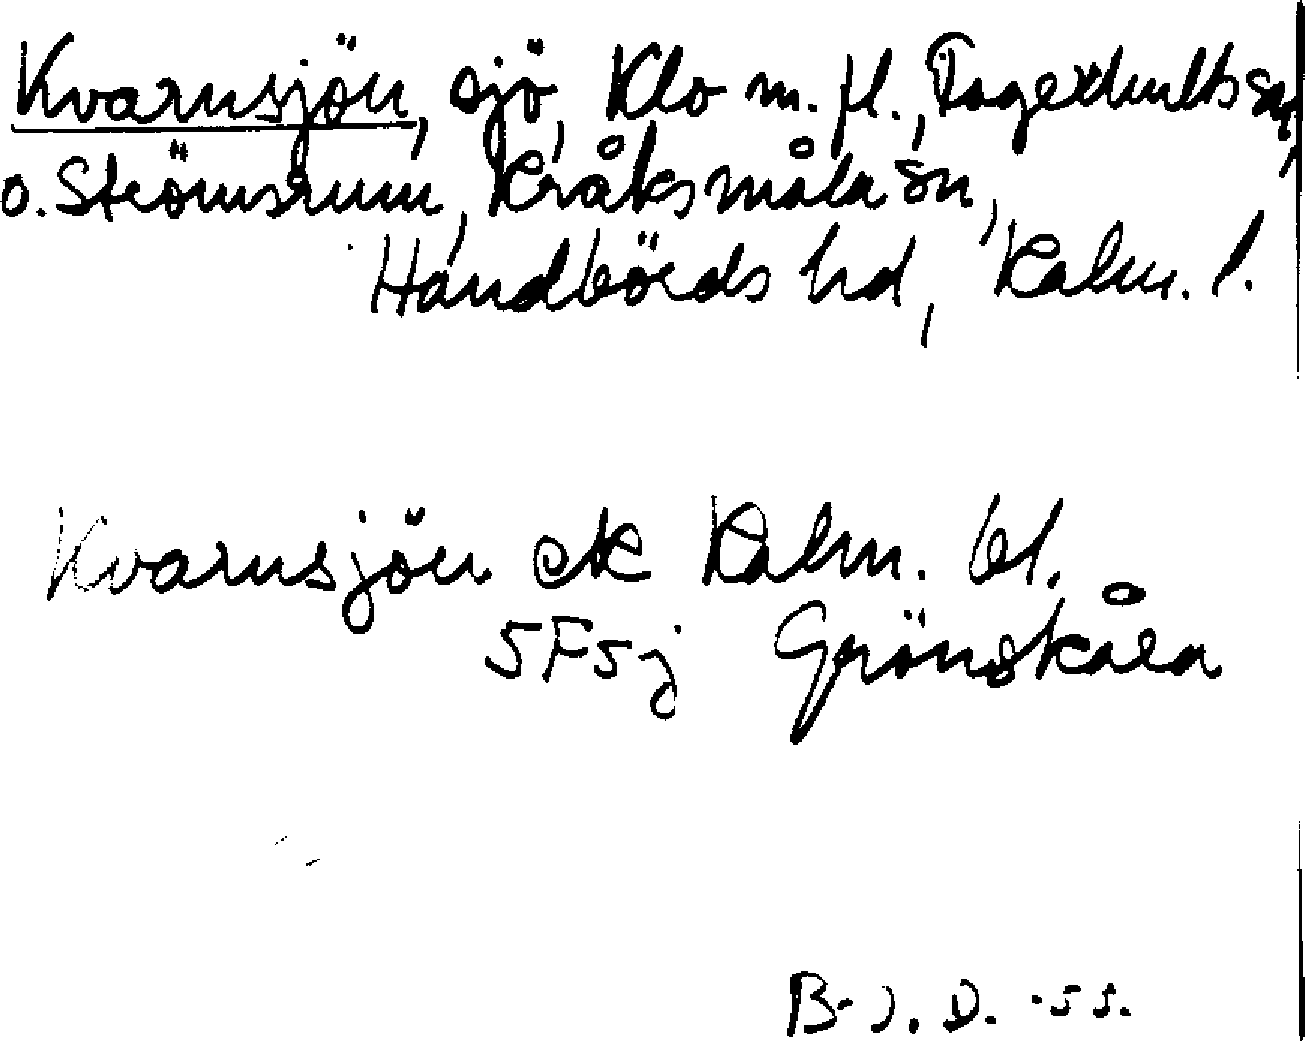 Kvarnsjön, sjö, Klo m. fl., Fagerhults sn,
o. Strömsrum, Kråksmåla sn,
Handbörds hd, Kalm. l.
Kvarnsjön ek Kalm. bl.
5F5j Grönskåra
B-J. D. -55.